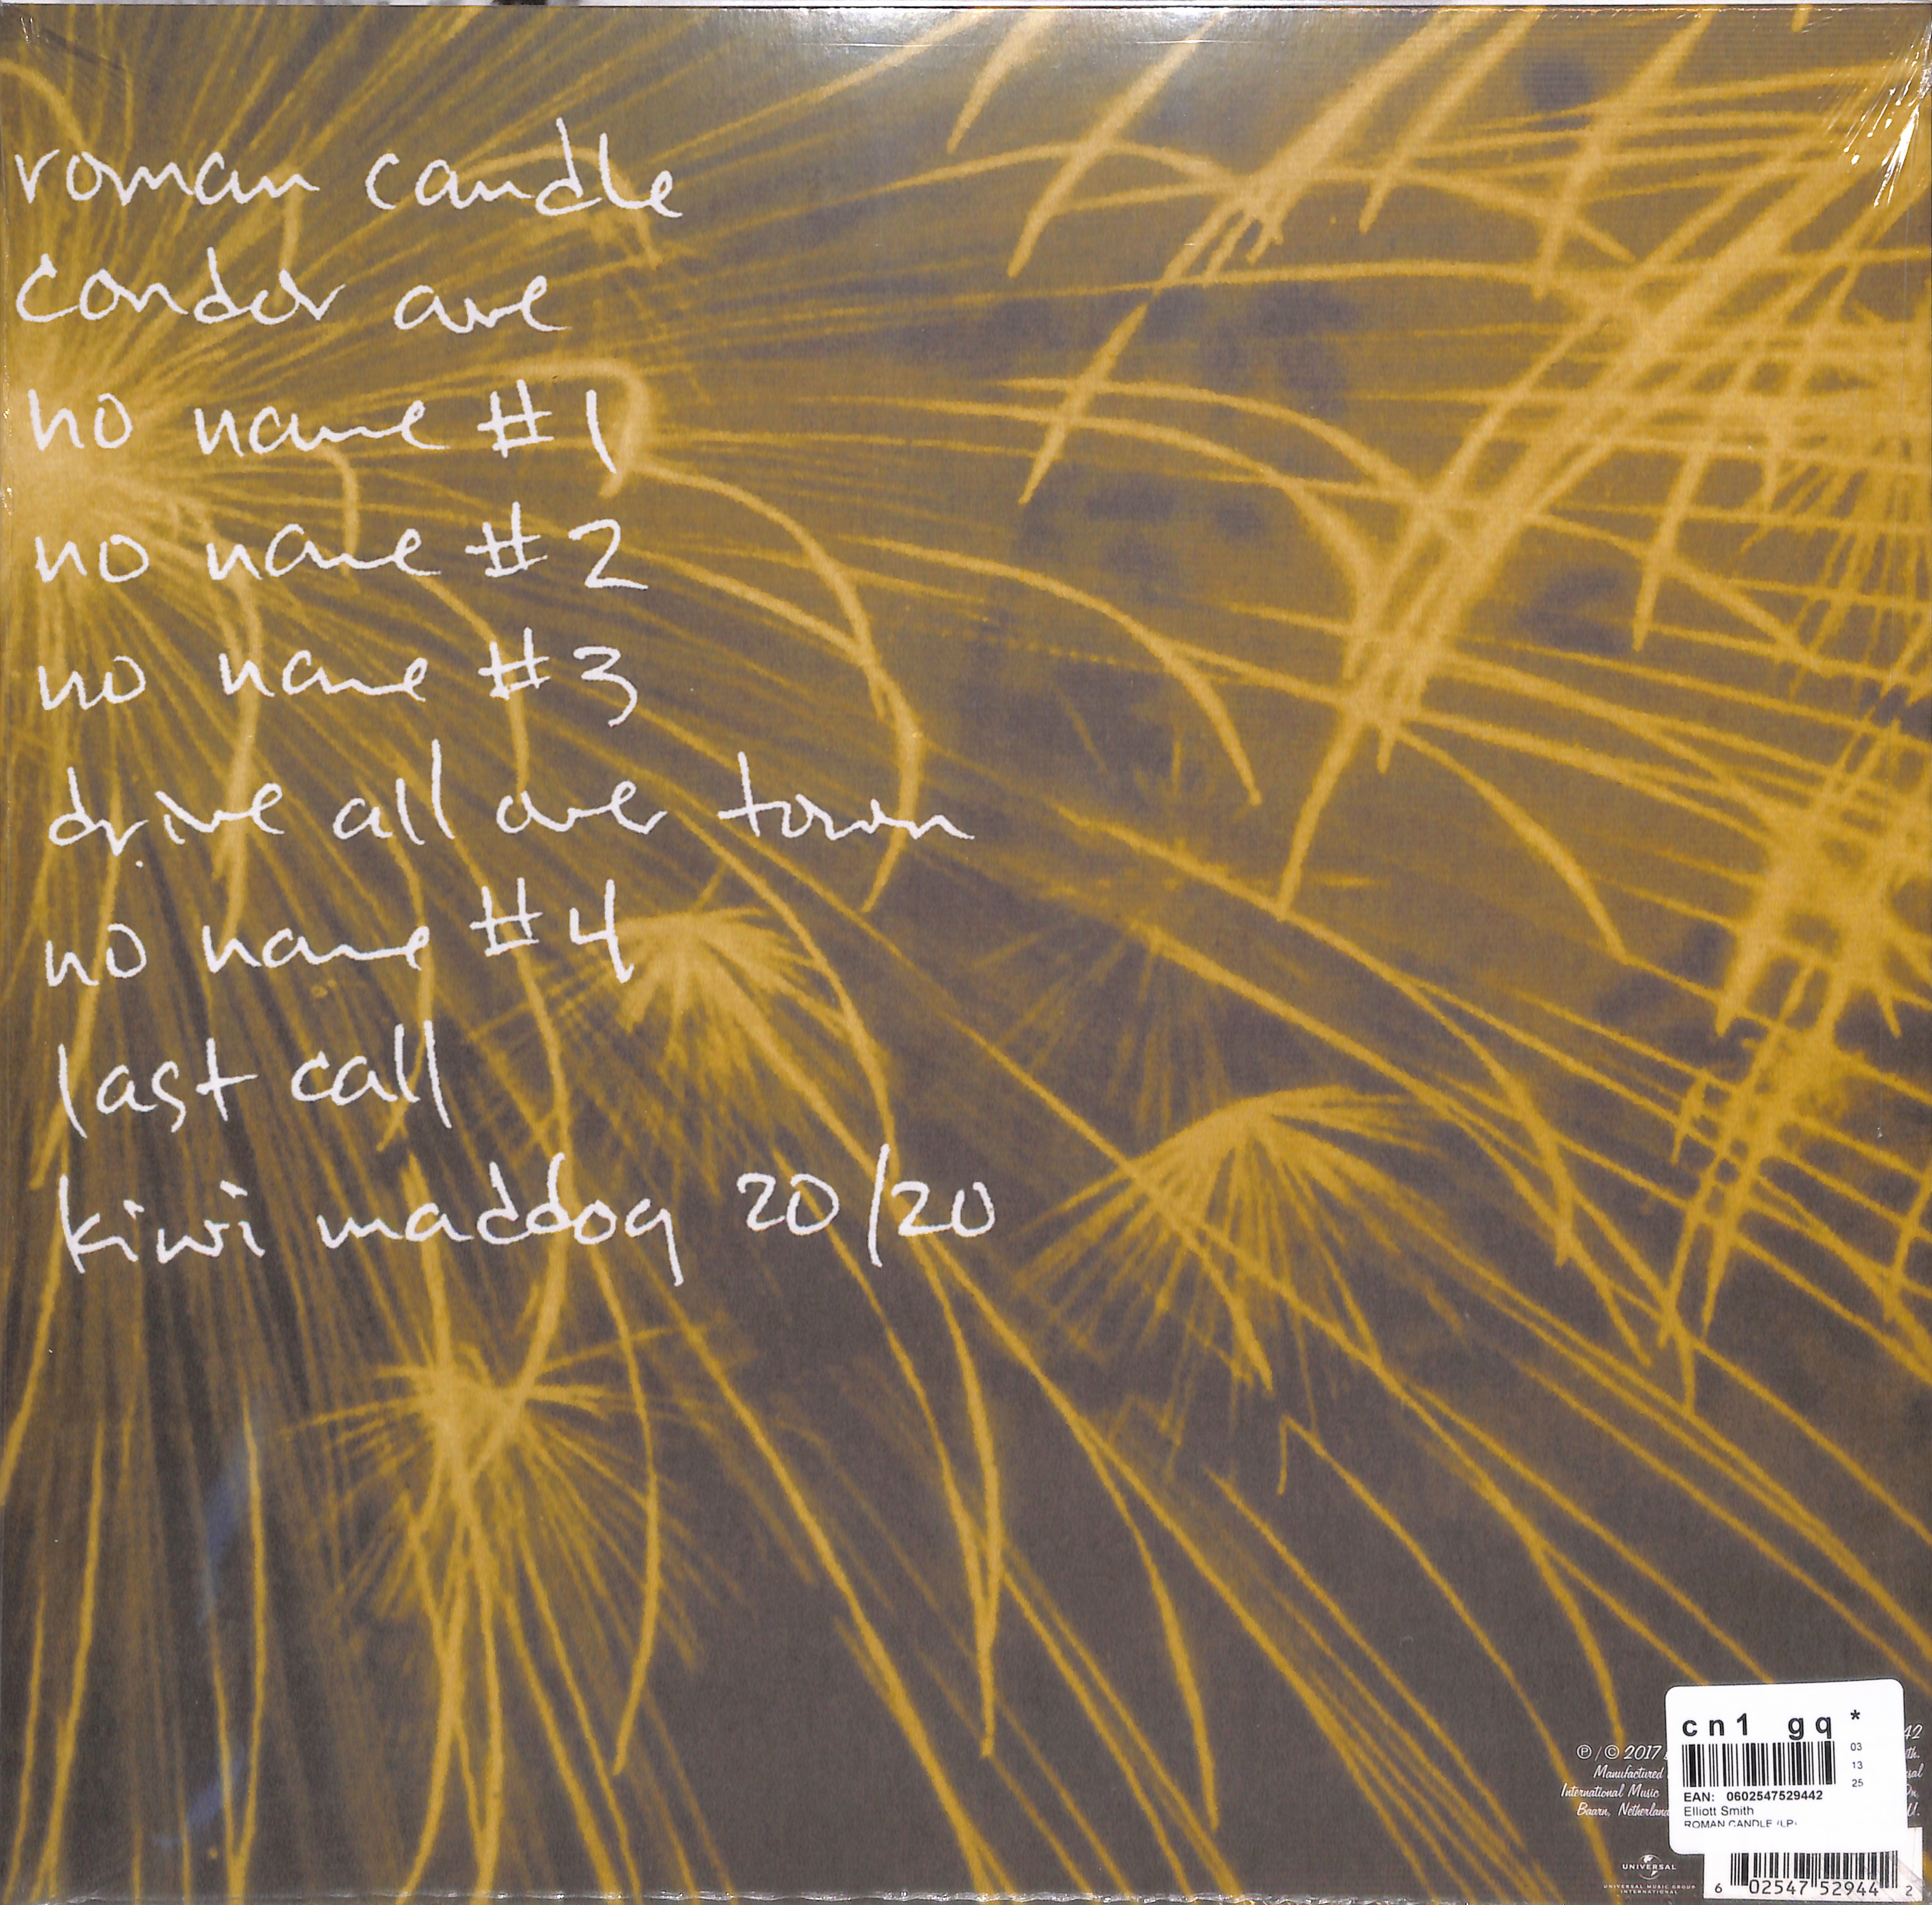 roman candle
condor ave
no name #1
no name #2
no name #3
drive all over town
no name #4
last call
kiwi maddog 20/20
cn1 gq *
03
13
25
EAN: 0602547529442
Elliott Smith
ROMAN CANDLE (LP)
℗ / © 2017
Manufactured
International Music
Baarn,
UNIVERSAL
UNIVERSAL MUSIC GROUP
INTERNATIONAL
6 02547 52944 2